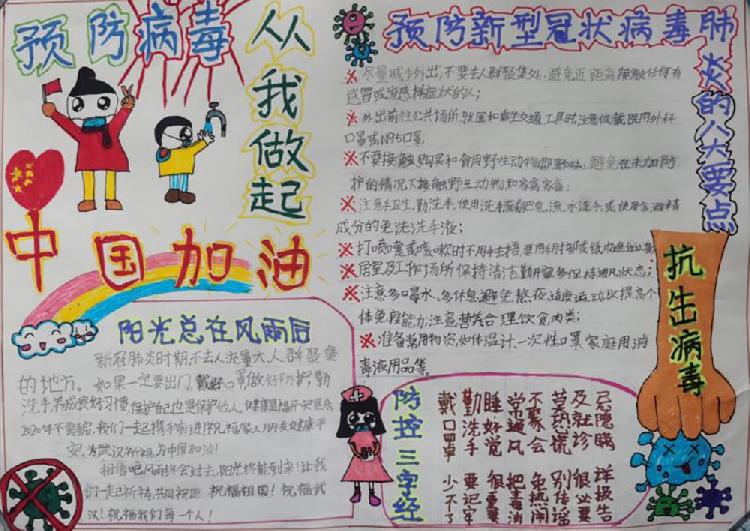 预防病毒
从我做起
中国加油
预防新型冠状病毒肺炎的八大要点
尽量减少外出,不要去人群聚集处,避免近距离接触任何有
感冒或流感样症状的人;
外出前往公共场所,就医和乘坐交通工具时,注意佩戴医用外科
口罩或N95口罩
不要接触,购买和食用野生动物,避免在未加防
护的情况下接触野生动物和家禽家畜;
注意手卫生,勤洗手,使用洗手液,流水洗手,或使用含酒精
成分的免洗洗手液;
打喷嚏或咳嗽时不用手去捂,要用手肘部或纸
居室及工作场所保持清洁,保持通风状态;
注意多喝水,多休息,避免熬夜,适度运动以提高个
体免疫能力;注意营养合理饮食肉类;
准备常用物资如体温计、一次性口罩家庭用消
毒液用品等。
抗击病毒
阳光总在风雨后
新冠肺炎时期不去人流量大,人群聚集
的地方。如果一定要出门,戴好口罩做好防护,勤
洗手,养成良好习惯
保护自己也是保护他人
2020年不要输,我们一起携手前进
为武汉祈祷,为中国加油!
相信吧风雨终会过去,阳光终能到来!让我
们一起祈祷,共同祝愿,祝福祖国!祝福武
汉!祝福我们每一个人!
防控三字经
忌隐瞒 详报告
及就诊 很必要
莫恐慌 别传谣
不聚会 免热闹
常通风 把毒消
睡好觉 很重要
勤洗手 要记牢
戴口罩 少不了